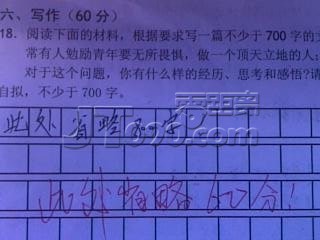 六、写作(60分)
18. 阅读下面的材料,根据要求写一篇不少于700字的文
常有人勉励青年要无所畏惧,做一个顶天立地的人;
对于这个问题,你有什么样的经历、思考和感悟?请
自拟,不少于700字。
此处省略800字!
此处省略60分!